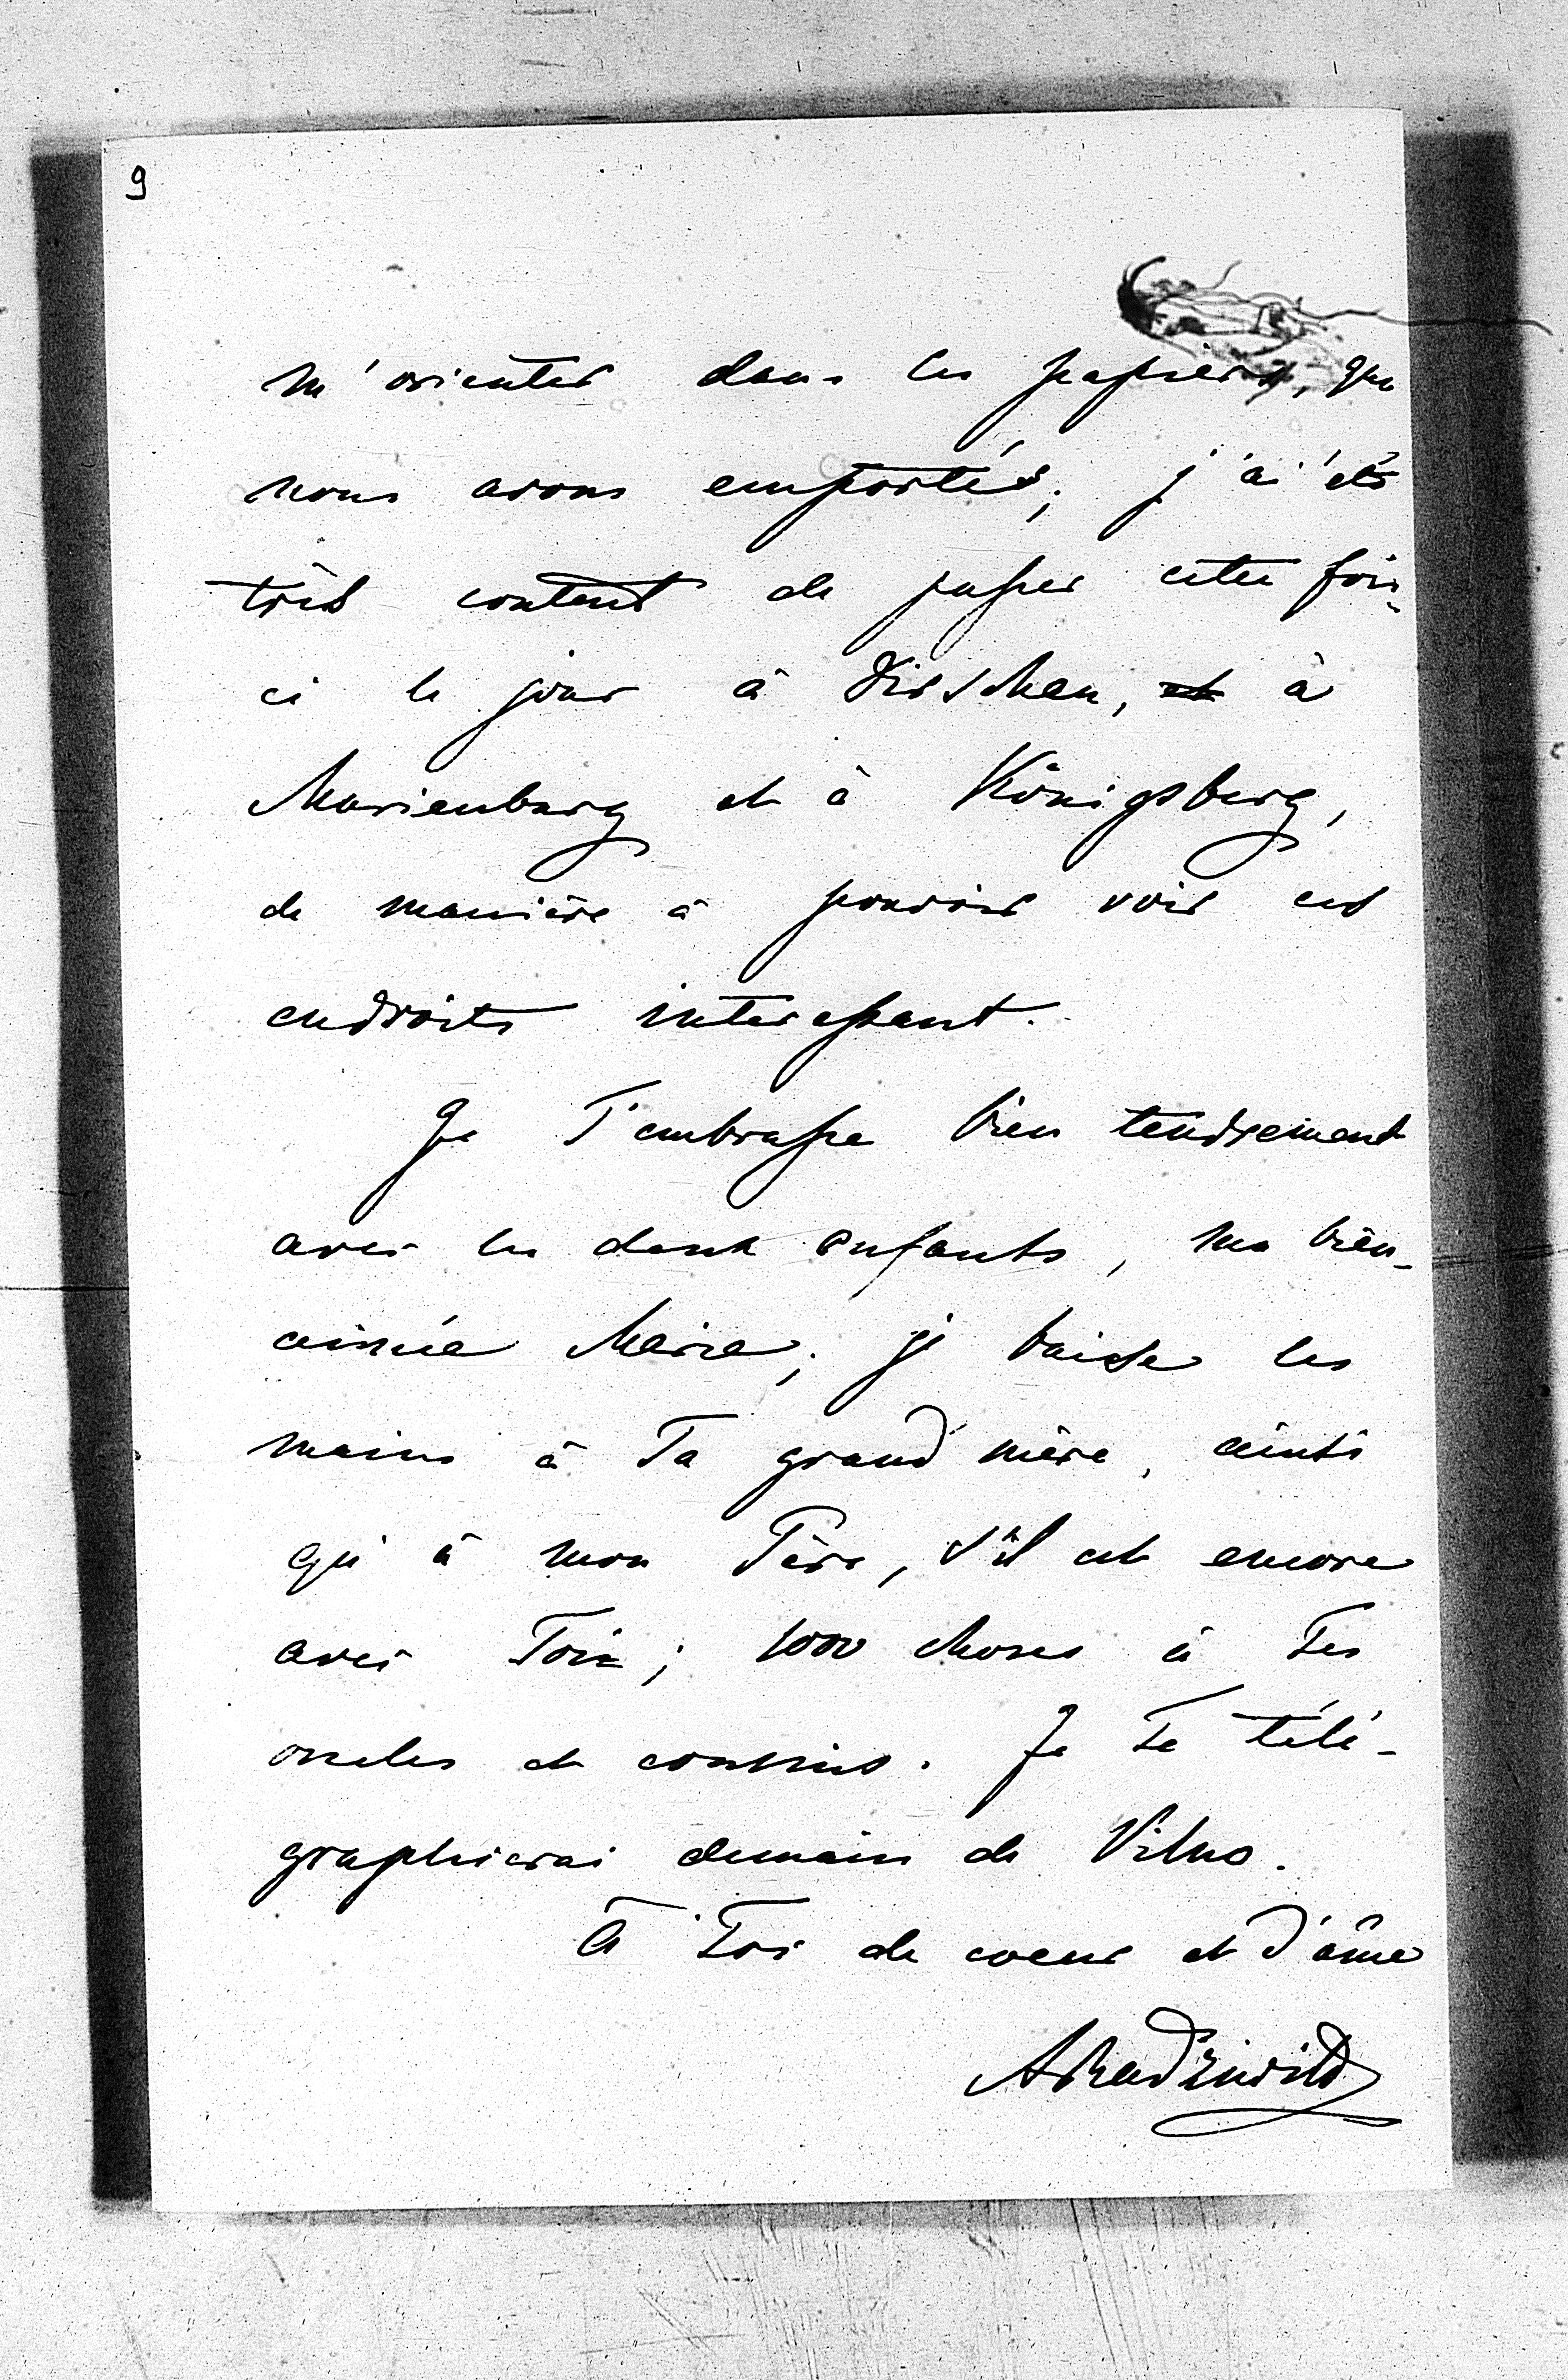 9
m'orienter dans les papiers, que
nous avons emportés; j'ai été
très content de passer cette fois-
ci le jour à Dirschau, et à
Marienburg et à Königsberg,
de manière à pouvoir voir ces
endroits interessant.
Je T'embrasse bien tendrement
avec les deux enfants, ma bien-
aimée Marie; je baise les
mains à Ta grand'mère, ainsi
qu'à mon Père, s'il est encore
avec Toi; 1000 choses à Tes
oncles et cousins. Je Te télé-
graphierai demain de Vilno.
À Toi de coeur et d'âme
ARadziwill